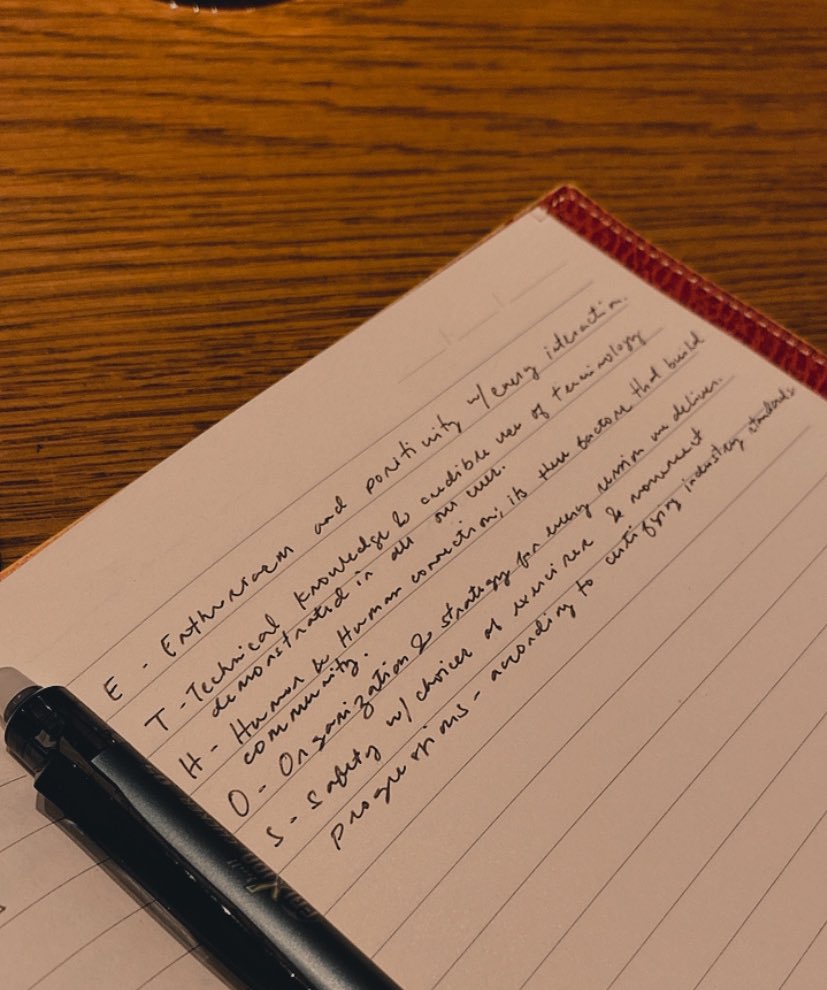 E - Enthusiasm and positivity w/ every interaction.
T - Technical knowledge & credible use of terminology
demonstrated in all our cues.
H - Humor & Human connection; its these factors that build
community.
O - Organization & strategy for every session we deliver.
S - Safety w/ choice of exercises & movement
progressions - according to certifying industry standards